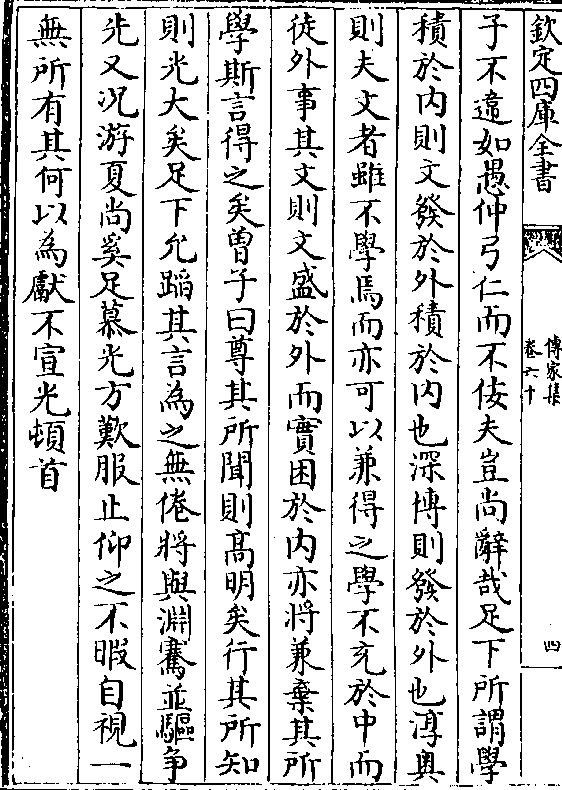 欽定四庫全書
傳家集
卷六十
四
子不違如愚仲弓仁而不佞夫豈尚辭哉足下所謂學
積於内則文發於外積於内也深博則發於外也淳奥
則夫文者雖不學焉而亦可以兼得之學不充於中而
徒外事其文則文盛於外而實困於内亦將兼棄其所
學斯言得之矣曽子曰尊其所聞則髙明矣行其所知
則光大矣足下允蹈其言為之無倦將與淵騫並驅争
先又况游夏尚奚足慕光方歎服止仰之不暇自視一
無所有其何以為獻不宣光頓首